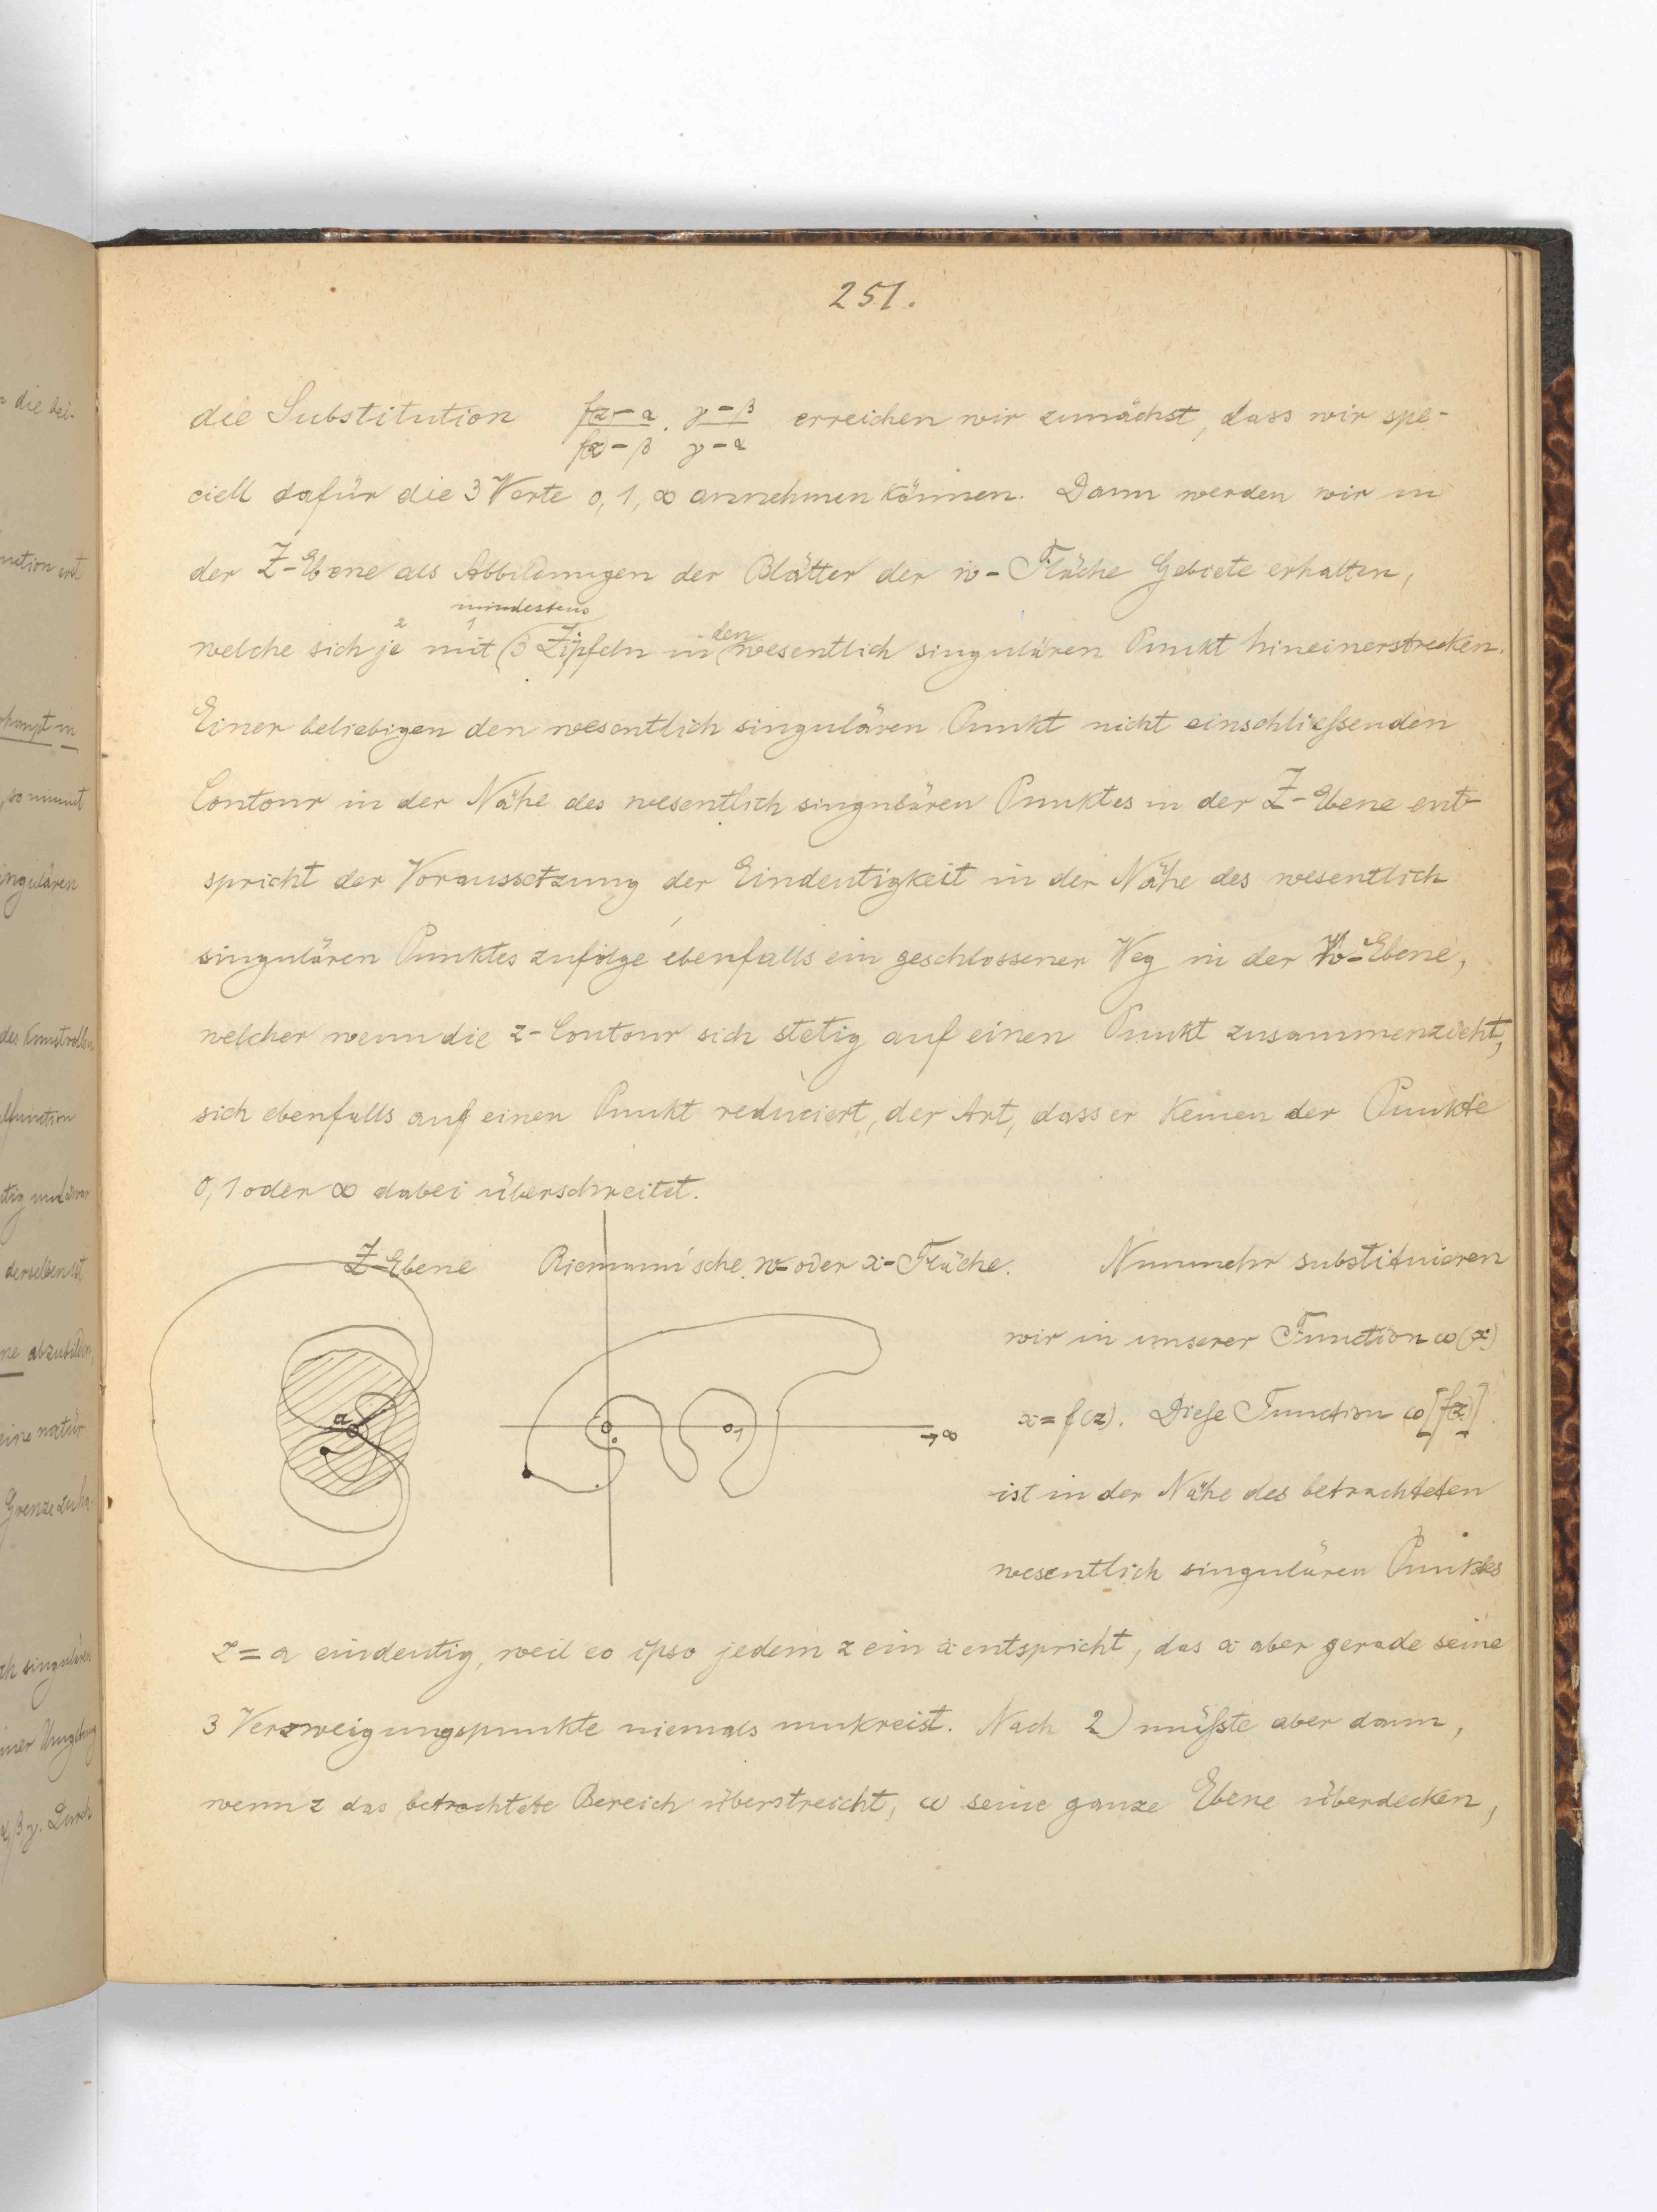 251.
die Substitution f(z)-α/f(z)-β · γ-β/γ-α erreichen wir zunächst, dass wir spe-
ciell dafür die 3 Werte 0, 1, ∞ annehmen können. Dann werden wir in
der Z-Ebene als Abbildungen der Blätter der w-Fläche Gebiete erhalten,
mindestens
welche sich je mit 3 Zipfeln in den wesentlich singulären Punkt hineinerstrecken.
Einer beliebigen den wesentlich singulären Punkt nicht einschließenden
Contour in der Nähe des wesentlich singulären Punktes in der Z-Ebene ent-
spricht der Voraussetzung der Eindeutigkeit in der Nähe des wesentlich
singulären Punktes zufolge ebenfalls ein geschlossener Weg in der W-Ebene,
welcher wenn die z-Contour sich stetig auf einen Punkt zusammenzieht,
sich ebenfalls auf einen Punkt reduciert, der Art, dass er keinen der Punkte
0, 1 oder ∞ dabei überschreitet.
Z-Ebene Riemann'sche w- oder x-Fläche.
a
0
1
→∞
Nunmehr substituieren
wir in unserer Function ω(x)
x = f(z). Diese Function ω[f(z)]
ist in der Nähe des betrachteten
wesentlich singulären Punktes
z = a eindeutig, weil eo ipso jedem z ein x entspricht, das x aber gerade seine
3 Verzweigungspunkte niemals umkreist. Nach 2) müßte aber dann,
wenn z das betrachtete Bereich überstreicht, ω seine ganze Ebene überdecken,
n die bei-
nction erst
rhaupt in
, so nimmt
ingulären
derselben ist
ne abzubilden,
eine natür
ch singulären
einer Umgebung
α, β, γ. Durch